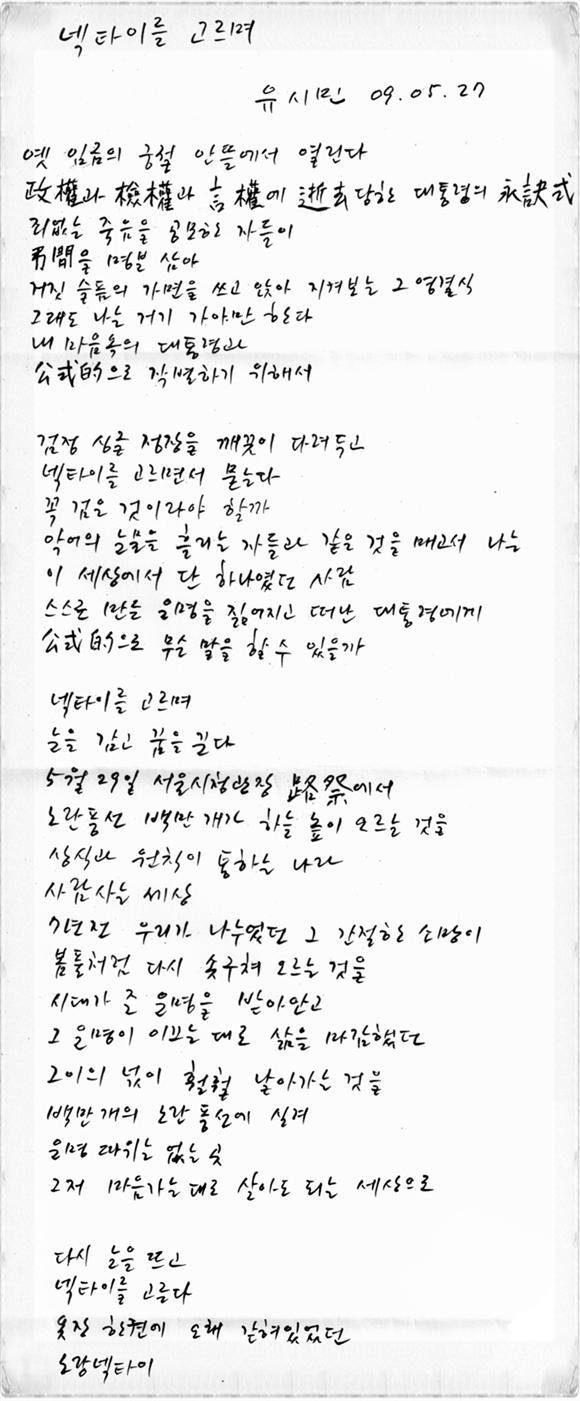 넥타이를 고르며
유시민 09.05.27
옛 임금의 궁궐 안뜰에서 열린다
政權과 檢權과 言權에 逝去당한 대통령의 永訣式
죄없는 죽음을 공모한 자들이
弔問을 명분 삼아
거짓 슬픔의 가면을 쓰고 앉아 지켜보는 그 영결식
그래도 나는 거기 가야만 한다
내 마음속의 대통령과
公式的으로 작별하기 위해서
검정 싱글 정장을 깨끗이 다려두고
넥타이를 고르면서 묻는다
꼭 검은 것이라야 할까
악어의 눈물을 흘리는 자들과 같은 것을 매고서 나는
이 세상에서 단 하나였던 사람
스스로 만든 운명을 짊어지고 떠난 대통령에게
公式的으로 무슨 말을 할 수 있을까
넥타이를 고르며
눈을 감고 꿈을 꾼다
5월 29일 서울시청광장 路祭에서
노란풍선 백만 개가 하늘 높이 오르는 것을
상식과 원칙이 통하는 나라
사람사는 세상
7년전 우리가 나누었던 그 간절한 소망이
봄풀처럼 다시 솟구쳐 오르는 것을
시대가 준 운명을 받아안고
그 운명이 이끄는 대로 삶을 마감했던
그이의 넋이 훨훨 날아가는 것을
백만 개의 노란 풍선에 실려
운명 따위는 없는 곳
그저 마음가는대로 살아도 되는 세상으로
다시 눈을 뜨고
넥타이를 고른다
옷장 한켠에 오래 갇혀있었던
노랑넥타이